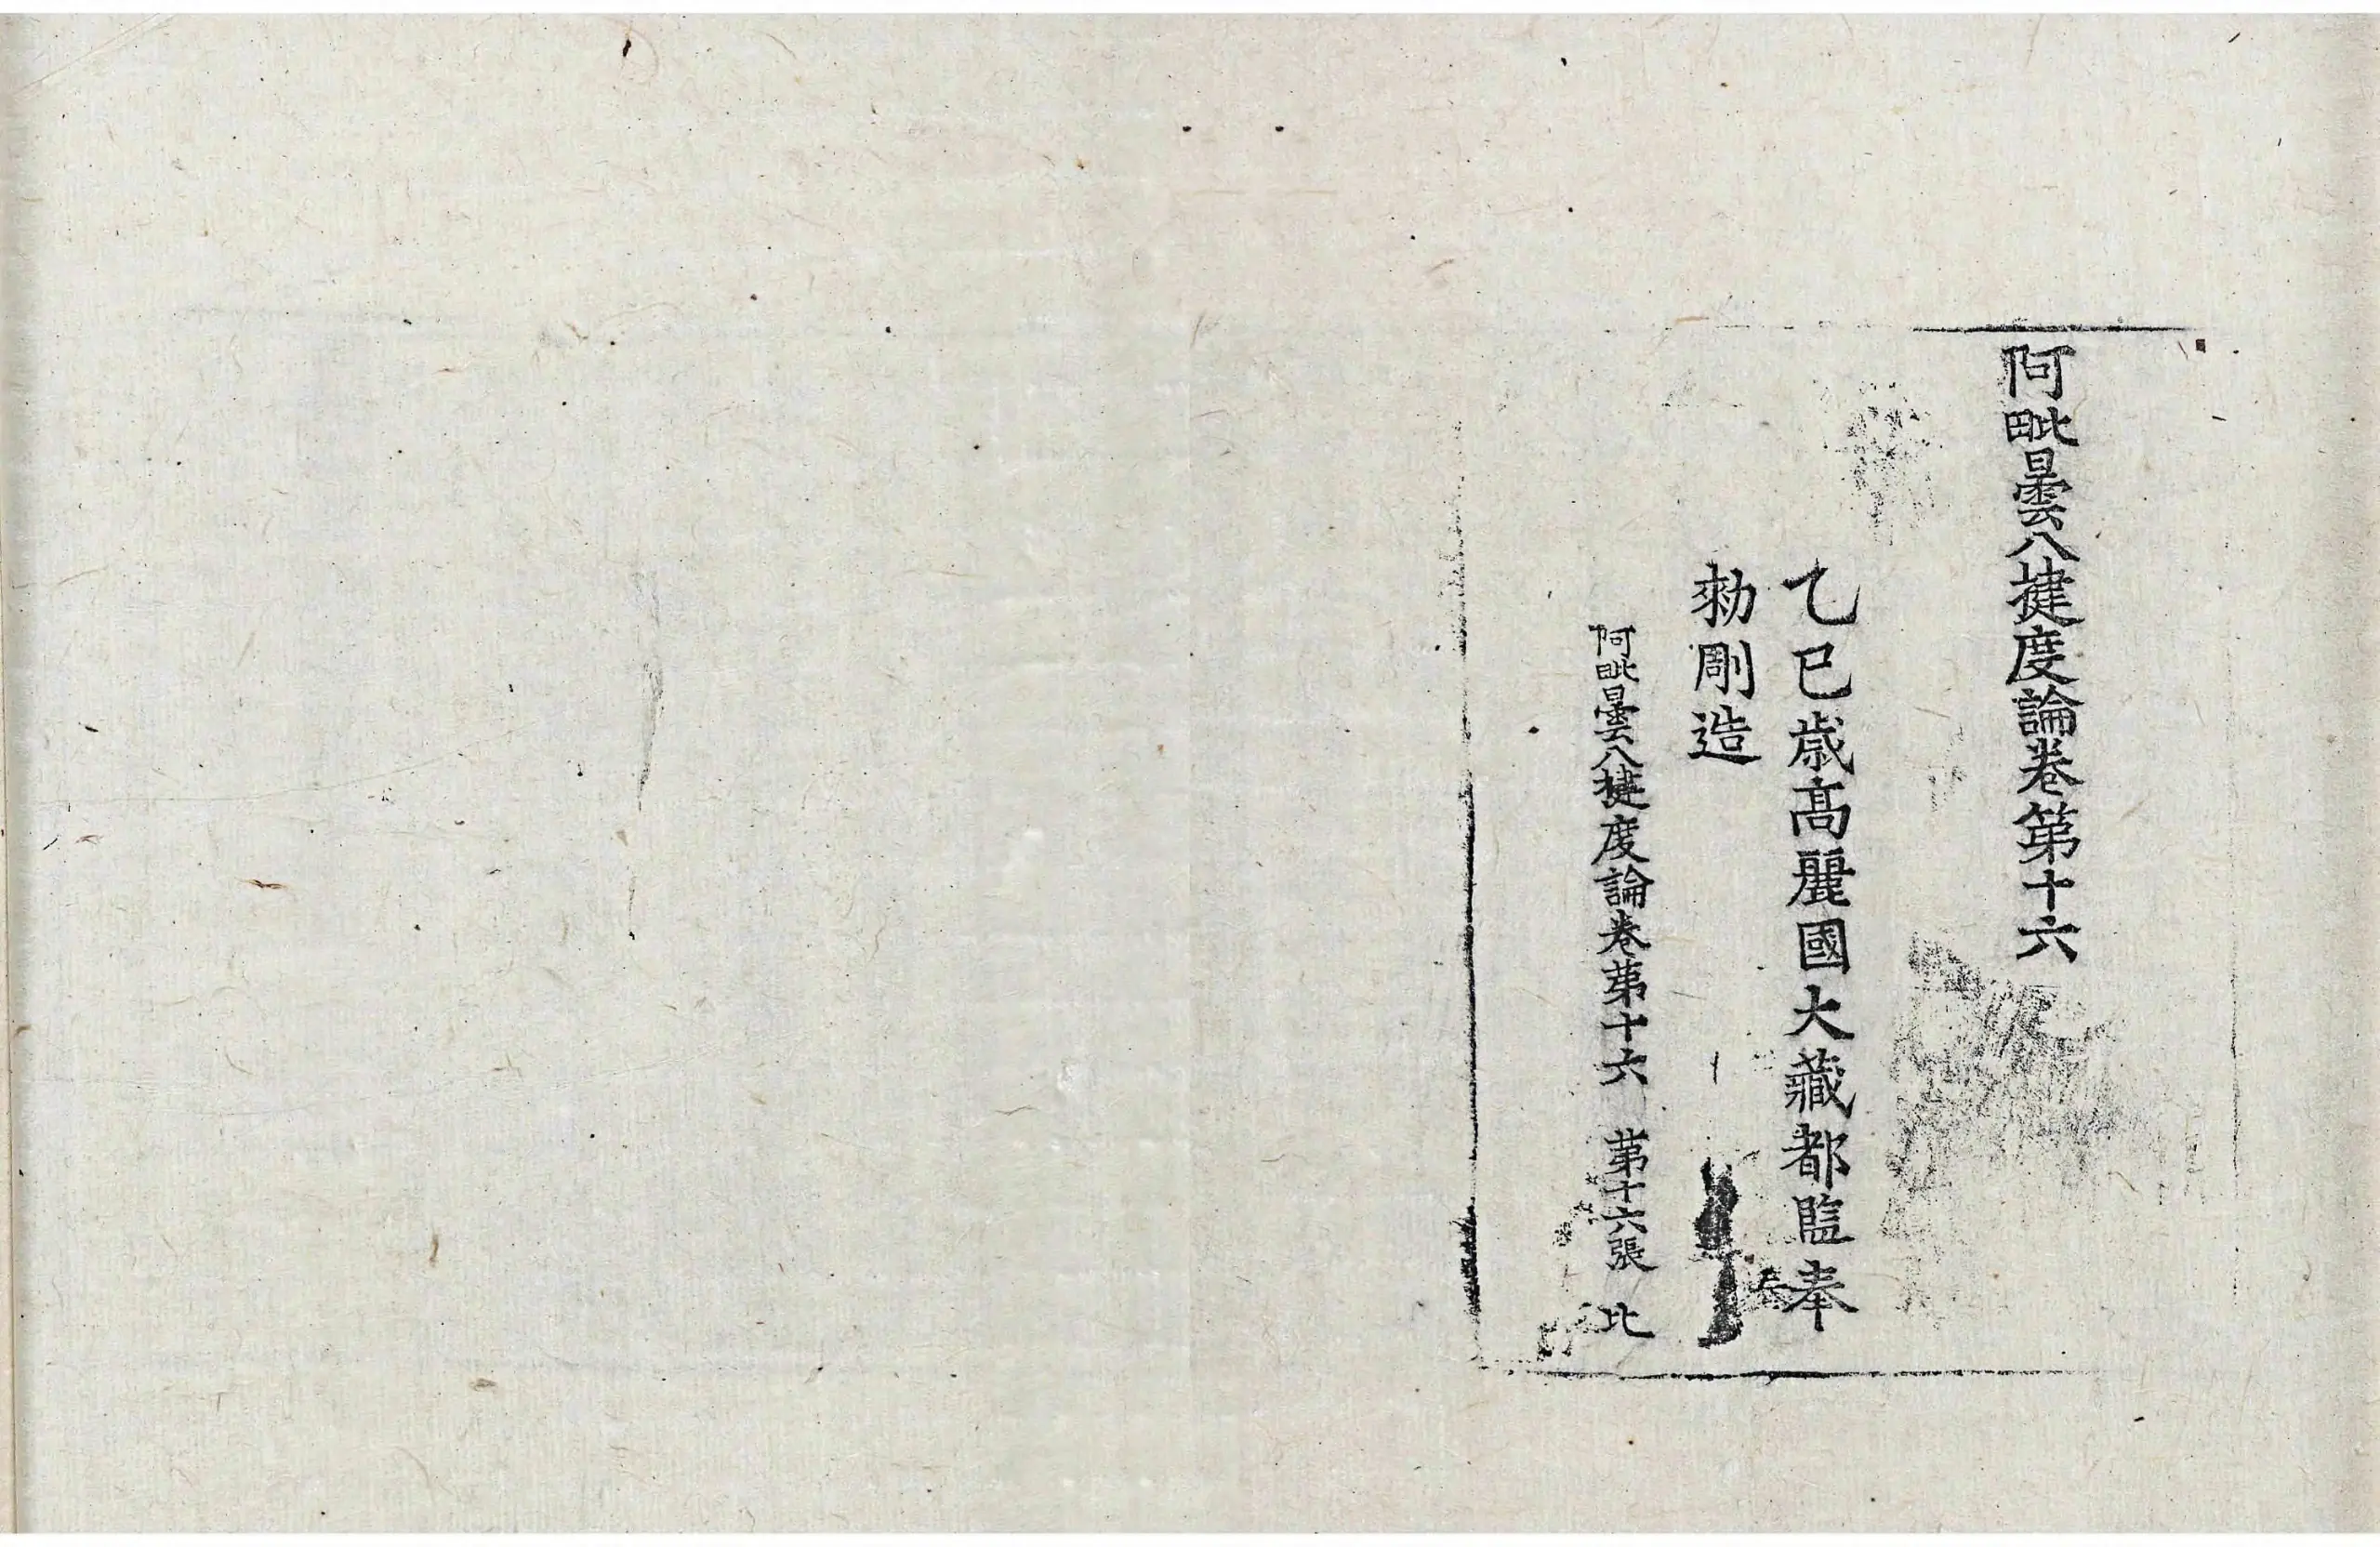 阿毗曇八揵度論卷第十六
乙巳歳高麗國大藏都監奉
勑彫造
阿毗曇八揵度論卷苐十六 苐十六張 比